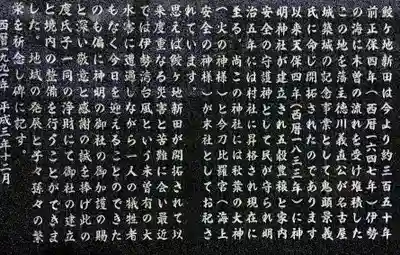 鮫ヶ地新田は今より約三百五十年
前正保四年(西暦一六四七年)伊勢
の海に木曽の流れを受け堆積した
この地を藩主徳川義直公が名古屋
城築城の記念事業として鬼頭景義
氏に命じ開拓されたのであります
以来天保四年(西暦一八三三年)に神
明神社が建立され五穀豊穣と家内
安全の守護神として民が守られ明
治五年には村社に昇格され現在に
至る。尚この神社には秋葉の大神
(火の神様)と今刀比羅宮(海上
安全の神様)が末社としてお祀さ
れています。
思えば鮫ヶ地新田が開拓されて以
来度重なる災害と苦難に会い最近
では伊勢湾台風という未曽有の大
水害に遭遇しながら一人の犠牲者
もなく今日を迎えることのできた
のも偏に神明の御社の御加護の賜
と深い敬意と感謝の誠を捧げ此の
度氏子一同の浄財にて御社の建立
と境内の整備を行うことができま
した。地域の発展と子々孫々の繁
栄を祈念し碑に記す。
西暦一九九一年 平成三年十二月